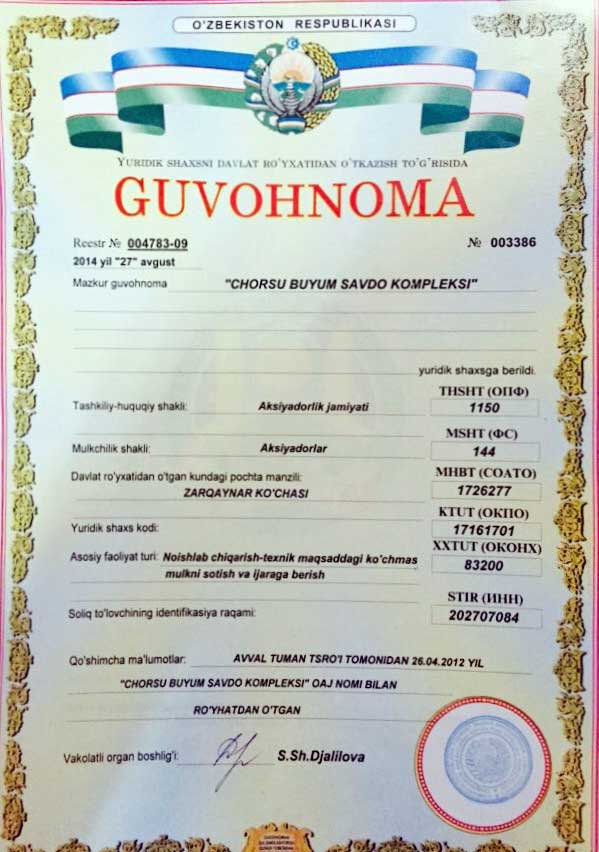 O'ZBEKISTON RESPUBLIKASI
YURIDIK SHAXSNI DAVLAT RO'YXATIDAN O'TKAZISH TO'G'RISIDA
GUVOHNOMA
Reestr № 004783-09 № 003386
2014 yil "27" avgust
Mazkur guvohnoma "CHORSU BUYUM SAVDO KOMPLEKSI"
yuridik shaxsga berildi.
THSHT (ОПФ)
Tashkiliy-huquqiy shakli: Aksiyadorlik jamiyati 1150
MSHT (ФС)
Mulkchilik shakli: Aksiyadorlar 144
Davlat ro'yxatidan o'tgan kundagi pochta manzili: MHBT (СОАТО)
ZARQAYNAR KO'CHASI 1726277
KTUT (ОКПО)
Yuridik shaxs kodi: 17161701
XXTUT (ОКОНХ)
Asosiy faoliyat turi: Noishlab chiqarish-texnik maqsaddagi ko'chmas 83200
mulkni sotish va ijaraga berish
STIR (ИНН)
Soliq to'lovchining identifikasiya raqami: 202707084
Qo'shimcha ma'lumotlar: AVVAL TUMAN TSRO'I TOMONIDAN 26.04.2012 YIL
"CHORSU BUYUM SAVDO KOMPLEKSI" OAJ NOMI BILAN
RO'YHATDAN O'TGAN
Vakolatli organ boshlig'i: S.Sh.Djalilova